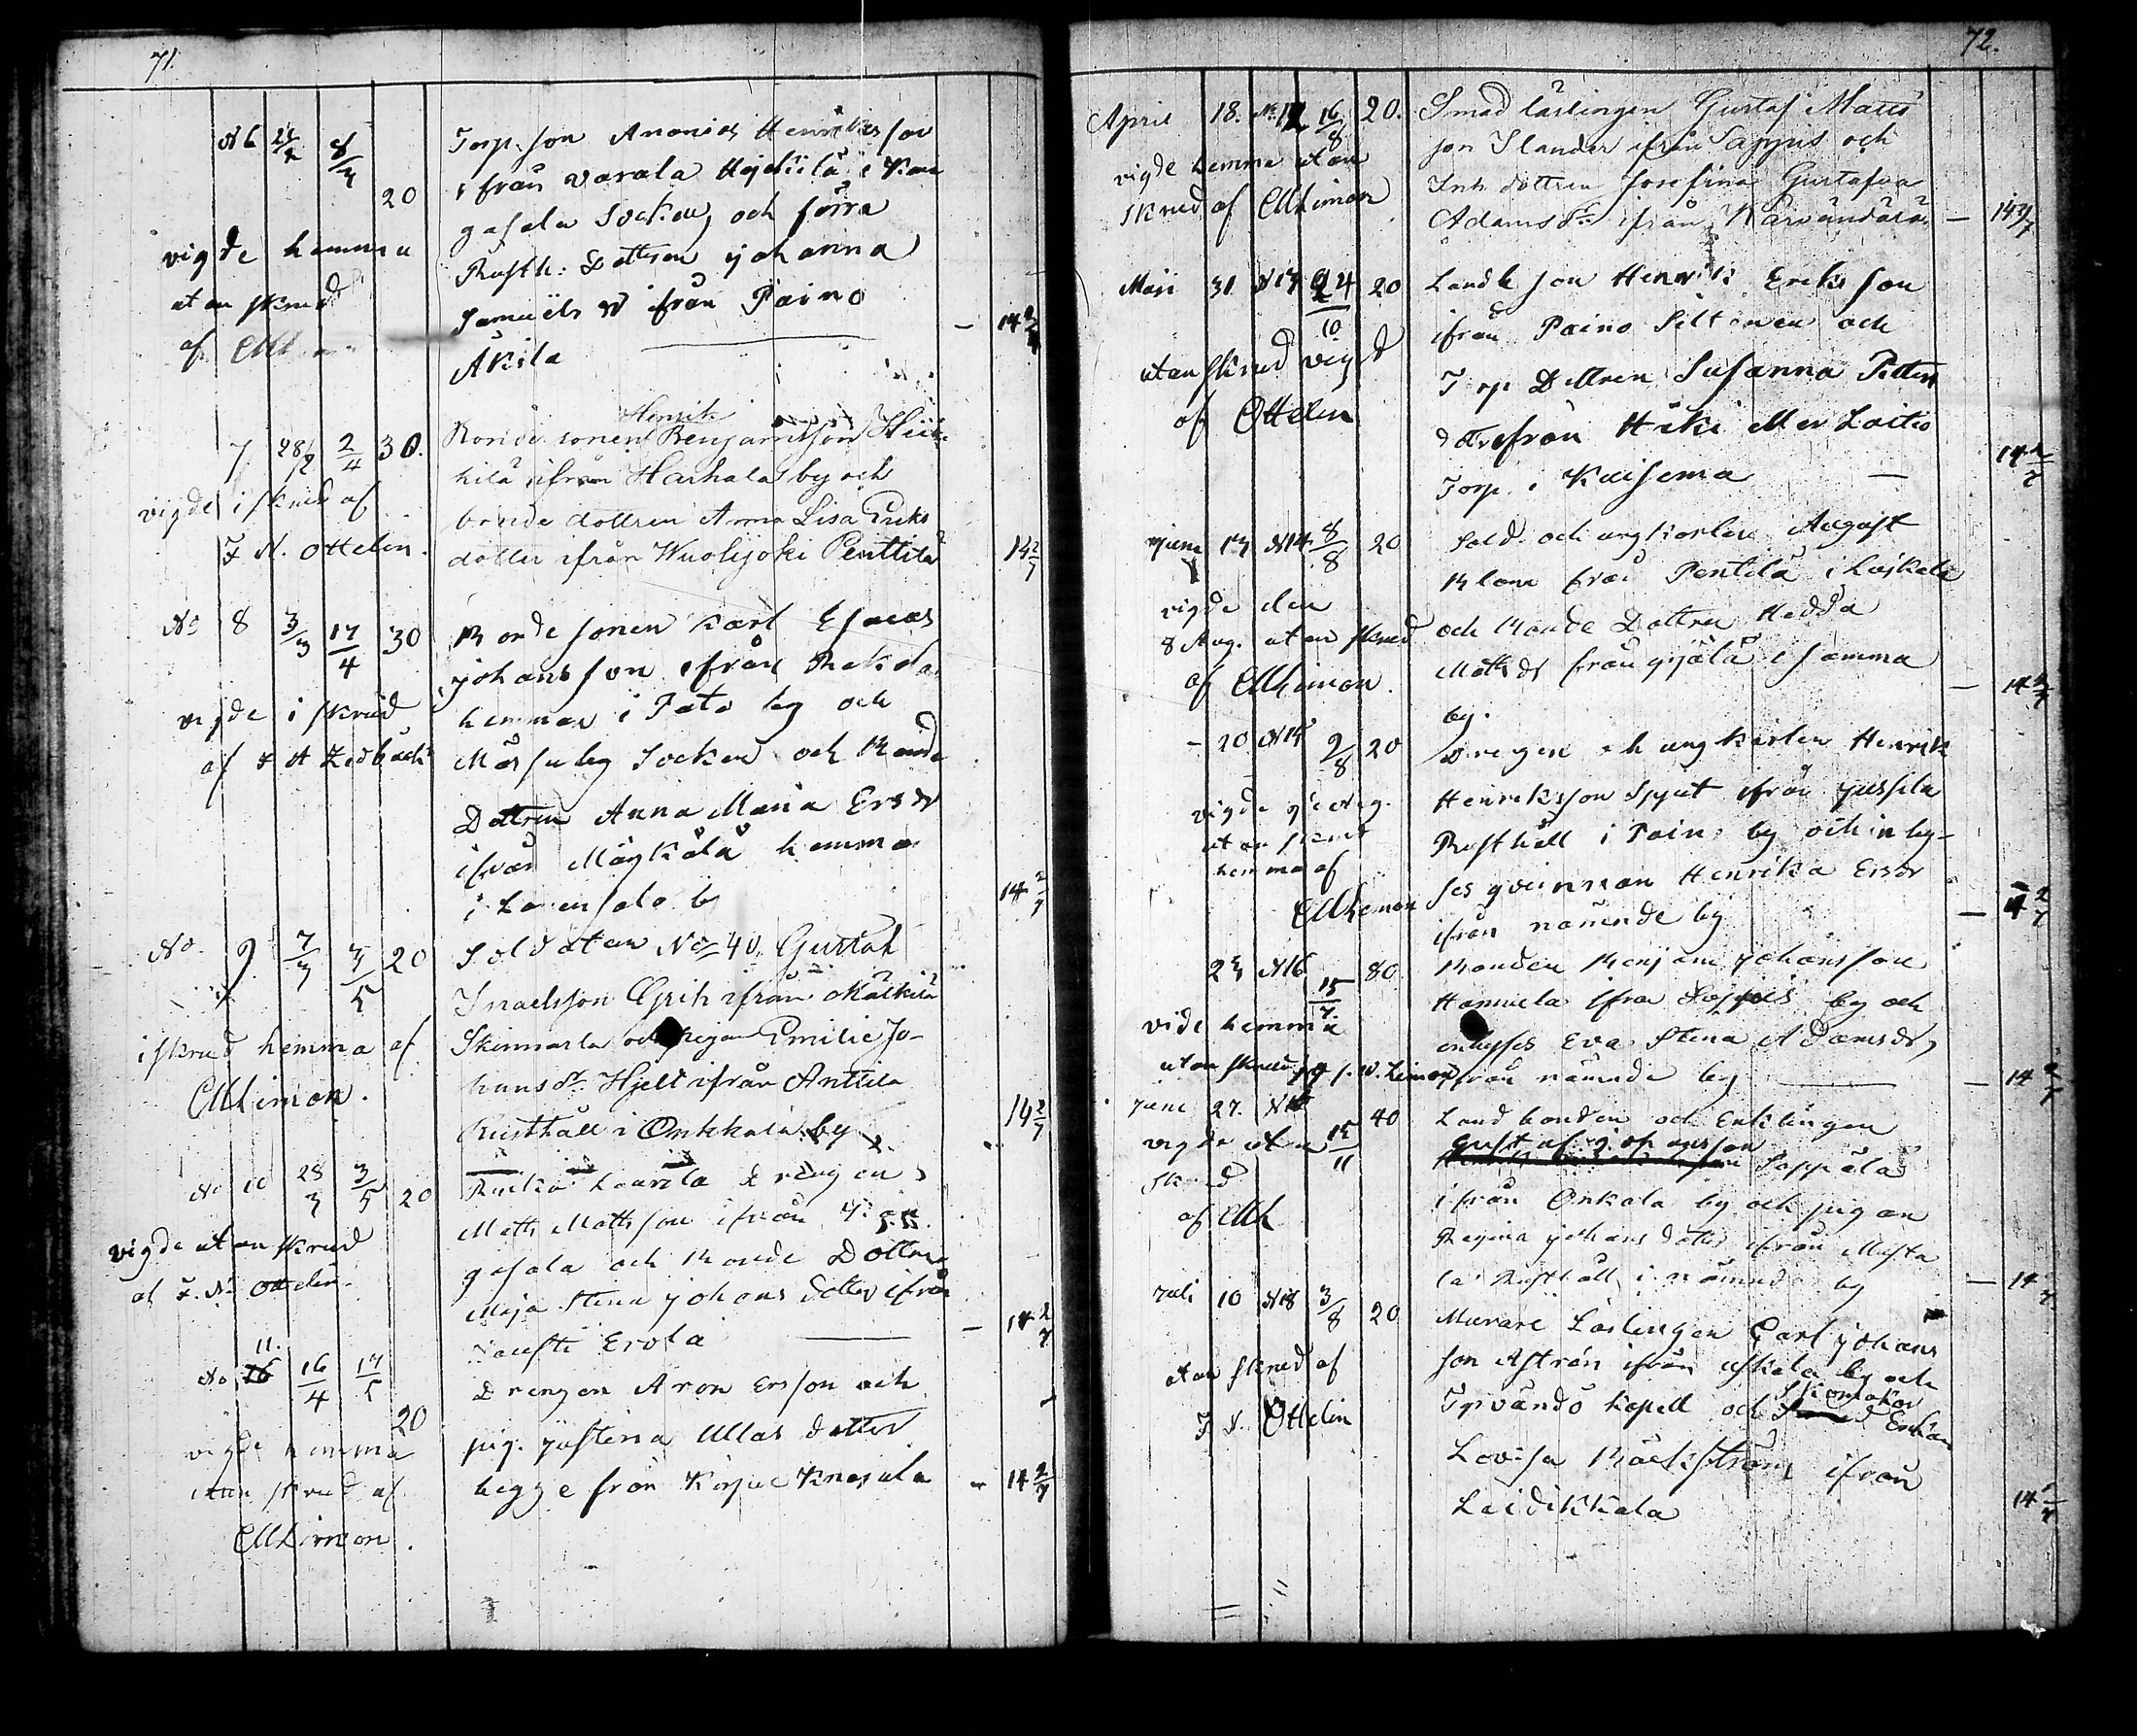 71.
N 6 8/4 20
Torp. son Ananias Henriksson
ifrån Warala Hyckilä i Kan
gasala Socken och förra
Rusth: Dottren johanna
Samuels dr ifrån Paino
Äkila
vigde hemma
utan skrud
af
14 2/7
7 28/2 2/4 30.
Henrik
Bonde sonen Benjaminson
kilä ifrån Harhala by och
bonde dottren Anna Lisa Eriks
dotter ifrån Wuolijoki Penttilä
vigde i skrud af
F N. Ottelin.
14 2/7
No 8 3/3 17/4 30
Bonde sonen Karl Esaias
johansson ifrån Rekola
hemman i Tato by och
Mårsuby Socken och Bonde
Dottren Anna Maria Ersdr
ifrån Mäykälä hemman
i Lovensalo by
vigde i skrud
af F A Zedbäck
14 2/7
No. 9 7/3 3/5 20
Soldaten No 40. Gustaf
Israelsson Grih ifrån Mälkilä
Skinnarla och pigan Emilie Jo-
hans dr. Hjelt ifrån Anttila
Rusthåll i Onkkala by
i skrud hemma af
CMLimon.
14 2/7
No 10 28/3 3/5 20
Laurila drengen
Matts Mattsson ifrån
gasala och Bonde Dottren
Maja Stina johans dotter ifrån
Erola
vigde utan skrud
af F. N. Ottelin.
14 2/7
11.
No 16/4 17/5 20
Drengen Aron Ersson och
pig. justina Ullas dotter
begge från
vigde hemma
utan skrud af
CMLimon.
14 2/7
72.
April 18. No 12 16/8 20.
Smed lärlingen Gustaf Matts
son Ilander ifrån Sappus och
Inh dottren Josefina Gustafva
Adamsdr ifrån
vigde hemma utan
skrud af CMLimon
14 2/7
Maji 31 N 13 24/10 20
Landb son Henrik Eriksson
ifrån Paino Siltanen och
Torp Dottren Susanna Petters
dotr ifrån Heiki
Torp. i Kaisema
utan skrud vigd
af Ottelin
14 2/7
juni 13 N 14 8/8 20
Sold. och ungkarlen August
Blom från Pentilä i Laskala
och Bonde Dottren Hedda
Matts dr från i samma
by.
vigde den
8 Aug. utan skrud
af CMLimon.
14 2/7
- 20 N 15 9/8 20
Drengen och ungkarlen Henrik
Henriksson Spjut ifrån jussila
Rusthåll i Paino by och inhy-
ses qvinnan Henrika Ersdr
ifrån nämnde by
vigde 9 Aug.
utan skrud
hemma af
CMLimon
14 2/7
23 N 16 15/7. 80.
Bonden Benjam johansson
Hannula ifrån Sappus by och
inhyses Eva Stina Adamsdr
ifrån nämnde by
vide hemma
utan skrud
14 2/7
juni 27. N 15/11 40
Landbonden och Enklingen
Gustaf johansson
Soppälä
ifrån Onkala by och pigan
Regina johans dotter ifrån Musta
la Rusthåll i nämnde by
vigde utan
skrud
af CML
14 2/7
juli 10 N 18 3/8 20
Murare Lärlingen Carl johans
son Astrén ifrån uskila by och
Tyrvändö kapell och
Skomakar Enkan
Lovisa Bäckström ifrån
Laidikkala
utan skrud af
F N. Ottelin
14 2/7